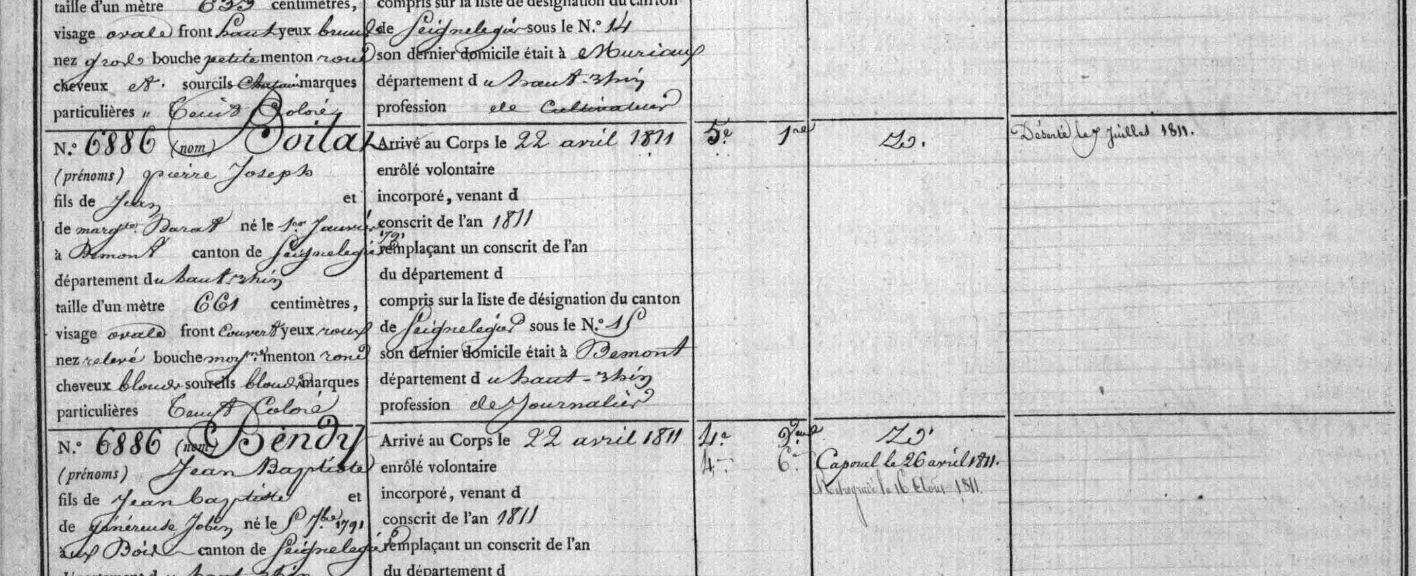 taille d'un mètre 655 centimètres,
visage ovale front haut yeux bruns
nez gros bouche petite menton rond
cheveux et sourcils Chatain marques
particulières " Teint Coloré
compris sur la liste de désignation du canton
de Seignelegier sous le N.° 14
son dernier domicile était à Muriaux
département du haut-rhin
profession de Cultivateur
N.° 6886 (nom) Boitat
(prénoms) pierre Joseph
fils de Jean et
de margte Barat né le 1er Janvier 1791
à Bemont canton de Seignelegier
département du haut-rhin
taille d'un mètre 661 centimètres,
visage ovale front Couvert yeux roux
nez relevé bouche moyne menton rond
cheveux blonds sourcils blonds marques
particulières Teint Coloré
Arrivé au Corps le 22 avril 1811
enrôlé volontaire
incorporé, venant d
conscrit de l'an 1811
remplaçant un conscrit de l'an
du département d
compris sur la liste de désignation du canton
de Seignelegier sous le N.° 15
son dernier domicile était à Bemont
département du haut-rhin
profession de Journalier
5e 1re
Débuté le Juillet 1811.
N.° 6886 (nom) Bendy
(prénoms) Jean Baptiste
fils de Jean baptiste et
de généreuse Jobin né le 5 7bre 1791
aux Bois canton de Seignelegier
département du haut-rhin
Arrivé au Corps le 22 avril 1811
enrôlé volontaire
incorporé, venant d
conscrit de l'an 1811
remplaçant un conscrit de l'an
du département d
4e 2me
4 6
Caporal le 26 avril 1811.
le 16 Aout 1811.